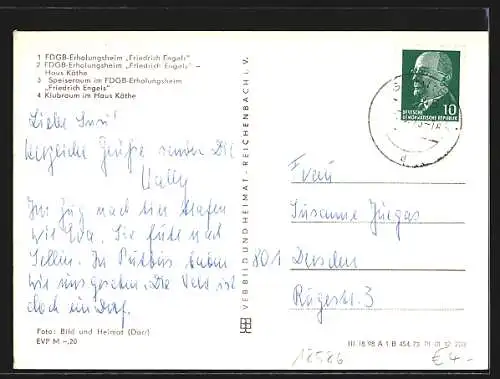 1 FDGB-Erholungsheim „Friedrich Engels"
2 FDGB-Erholungsheim „Friedrich Engels" –
Haus Käthe
3 Speiseraum im FDGB-Erholungsheim
„Friedrich Engels"
4 Klubraum im Haus Käthe
Liebe Susi!
herzliche Grüße senden Dir
Im Zug nach hier trafen
wir Eva. Sie fuhr nach
Sellin. In Putbus haben
wir uns gesehen. Die Welt ist
doch ein Dorf.
Foto: Bild und Heimat (Darr)
EVP M –,20
VEB BILD UND HEIMAT · REICHENBACH i. V.
10
DEUTSCHE
DEMOKRATISCHE REPUBLIK
Frau
Susanne
801 Dresden
3
III 18 98 A 1 B 454/73
18586
€ 4.-